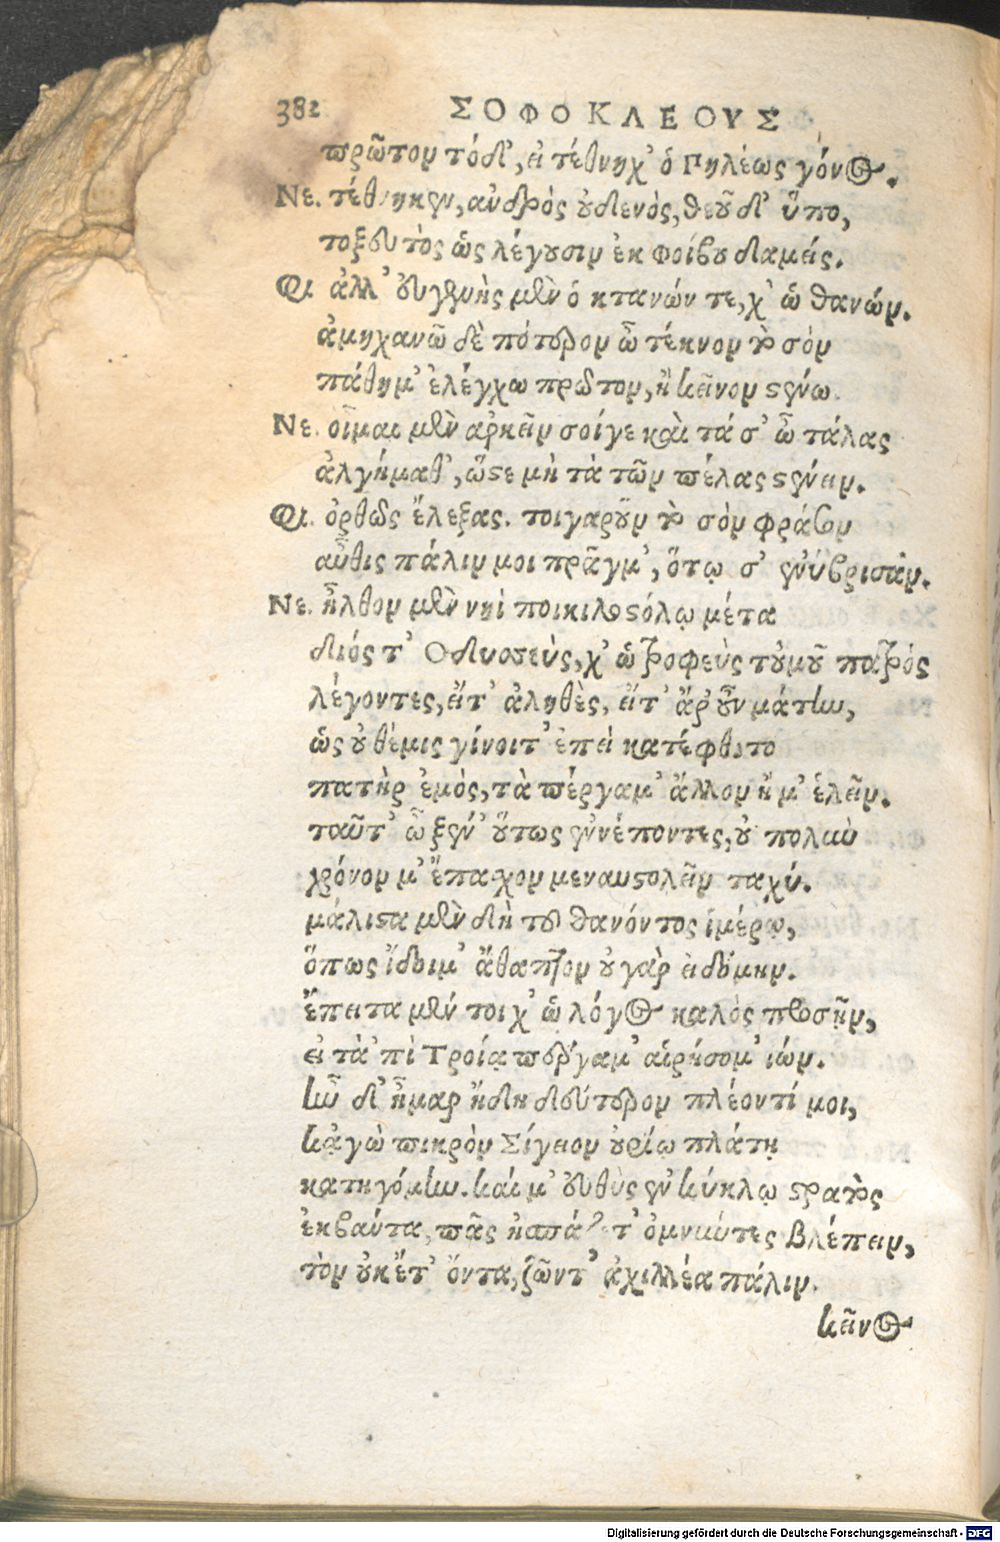 382 ΣΟΦΟΚΛΕΟΥΣ
πρῶτον τόδ', εἰ τέθνηχ' ὁ Πηλέως γόνος.
Νε. τέθνηκεν, ἀνδρὸς οὐδενὸς, θεοῦ δ' ὕπο,
τοξευτὸς ὡς λέγουσιν ἐκ φοίβου δαμείς.
Φι ἀλλ' εὐγενὴς μὲν ὁ κτανών τε, χ' ὡ θανών.
ἀμηχανῶ δὲ πότερον ὦ τέκνον τὸ σὸν
πάθημ' ἐλέγχω πρῶτον, ἢ κεῖνον στένω.
Νε. οἶμαι μὲν ἀρκεῖν σοίγε καὶ τά σ' ὦ τάλας
ἀλγήμαθ', ὥστε μὴ τὰ τῶν πέλας στένειν.
Φι. ὀρθῶς ἔλεξας. τοιγαροῦν τὸ σὸν φράσον
αὖθις πάλιν μοι πρᾶγμ', ὅτῳ σ' ἐνύβρισαν.
Νε. ἦλθον μὲν νηὶ ποικιλοστόλῳ μέτα
διός τ' Ὀδυσσεὺς, χ' ὡ τροφεὺς τοὐμοῦ πατρός
λέγοντες, εἴτ' ἀληθὲς, εἴτ' ἄρ' οὖν μάτην,
ὡς οὐ θέμις γίνοιτ' ἐπεὶ κατέφθιτο
πατὴρ ἐμός, τὰ πέργαμ' ἄλλον ἤ μ' ἑλεῖν.
ταῦτ' ὦ ξέν' οὕτως ἐννέποντες, οὐ πολὺν
χρόνον μ' ἔπαχον μεναυστολεῖν ταχύ.
μάλιστα μὲν δὴ τοῦ θανόντος ἱμέρῳ,
ὅπως ἴδοιμ' ἄθαπτον οὐ γὰρ εἰδόμην.
ἔπειτα μέν τοι χ' ὡ λόγος καλὸς προσῆν,
εἰ τἀ 'πὶ Τροίᾳ πέργαμ' αἱρήσομ' ἰών.
ἦν δ' ἦμαρ ἤδη δεύτερον πλέοντί μοι,
κᾀγὼ πικρὸν Σίγειον οὐρίῳ πλάτῃ
κατηγόμην. καί μ' εὐθὺς ἐν κύκλῳ στρατὸς
ἐκβάντα, πᾶς ἠσπάζετ' ὀμνύντες βλέπειν,
τὸν οὐκ ἔτ' ὄντα, ζῶντ' ἀχιλλέα πάλιν.
κεῖνος
Digitalisierung gefördert durch die Deutsche Forschungsgemeinschaft - DFG